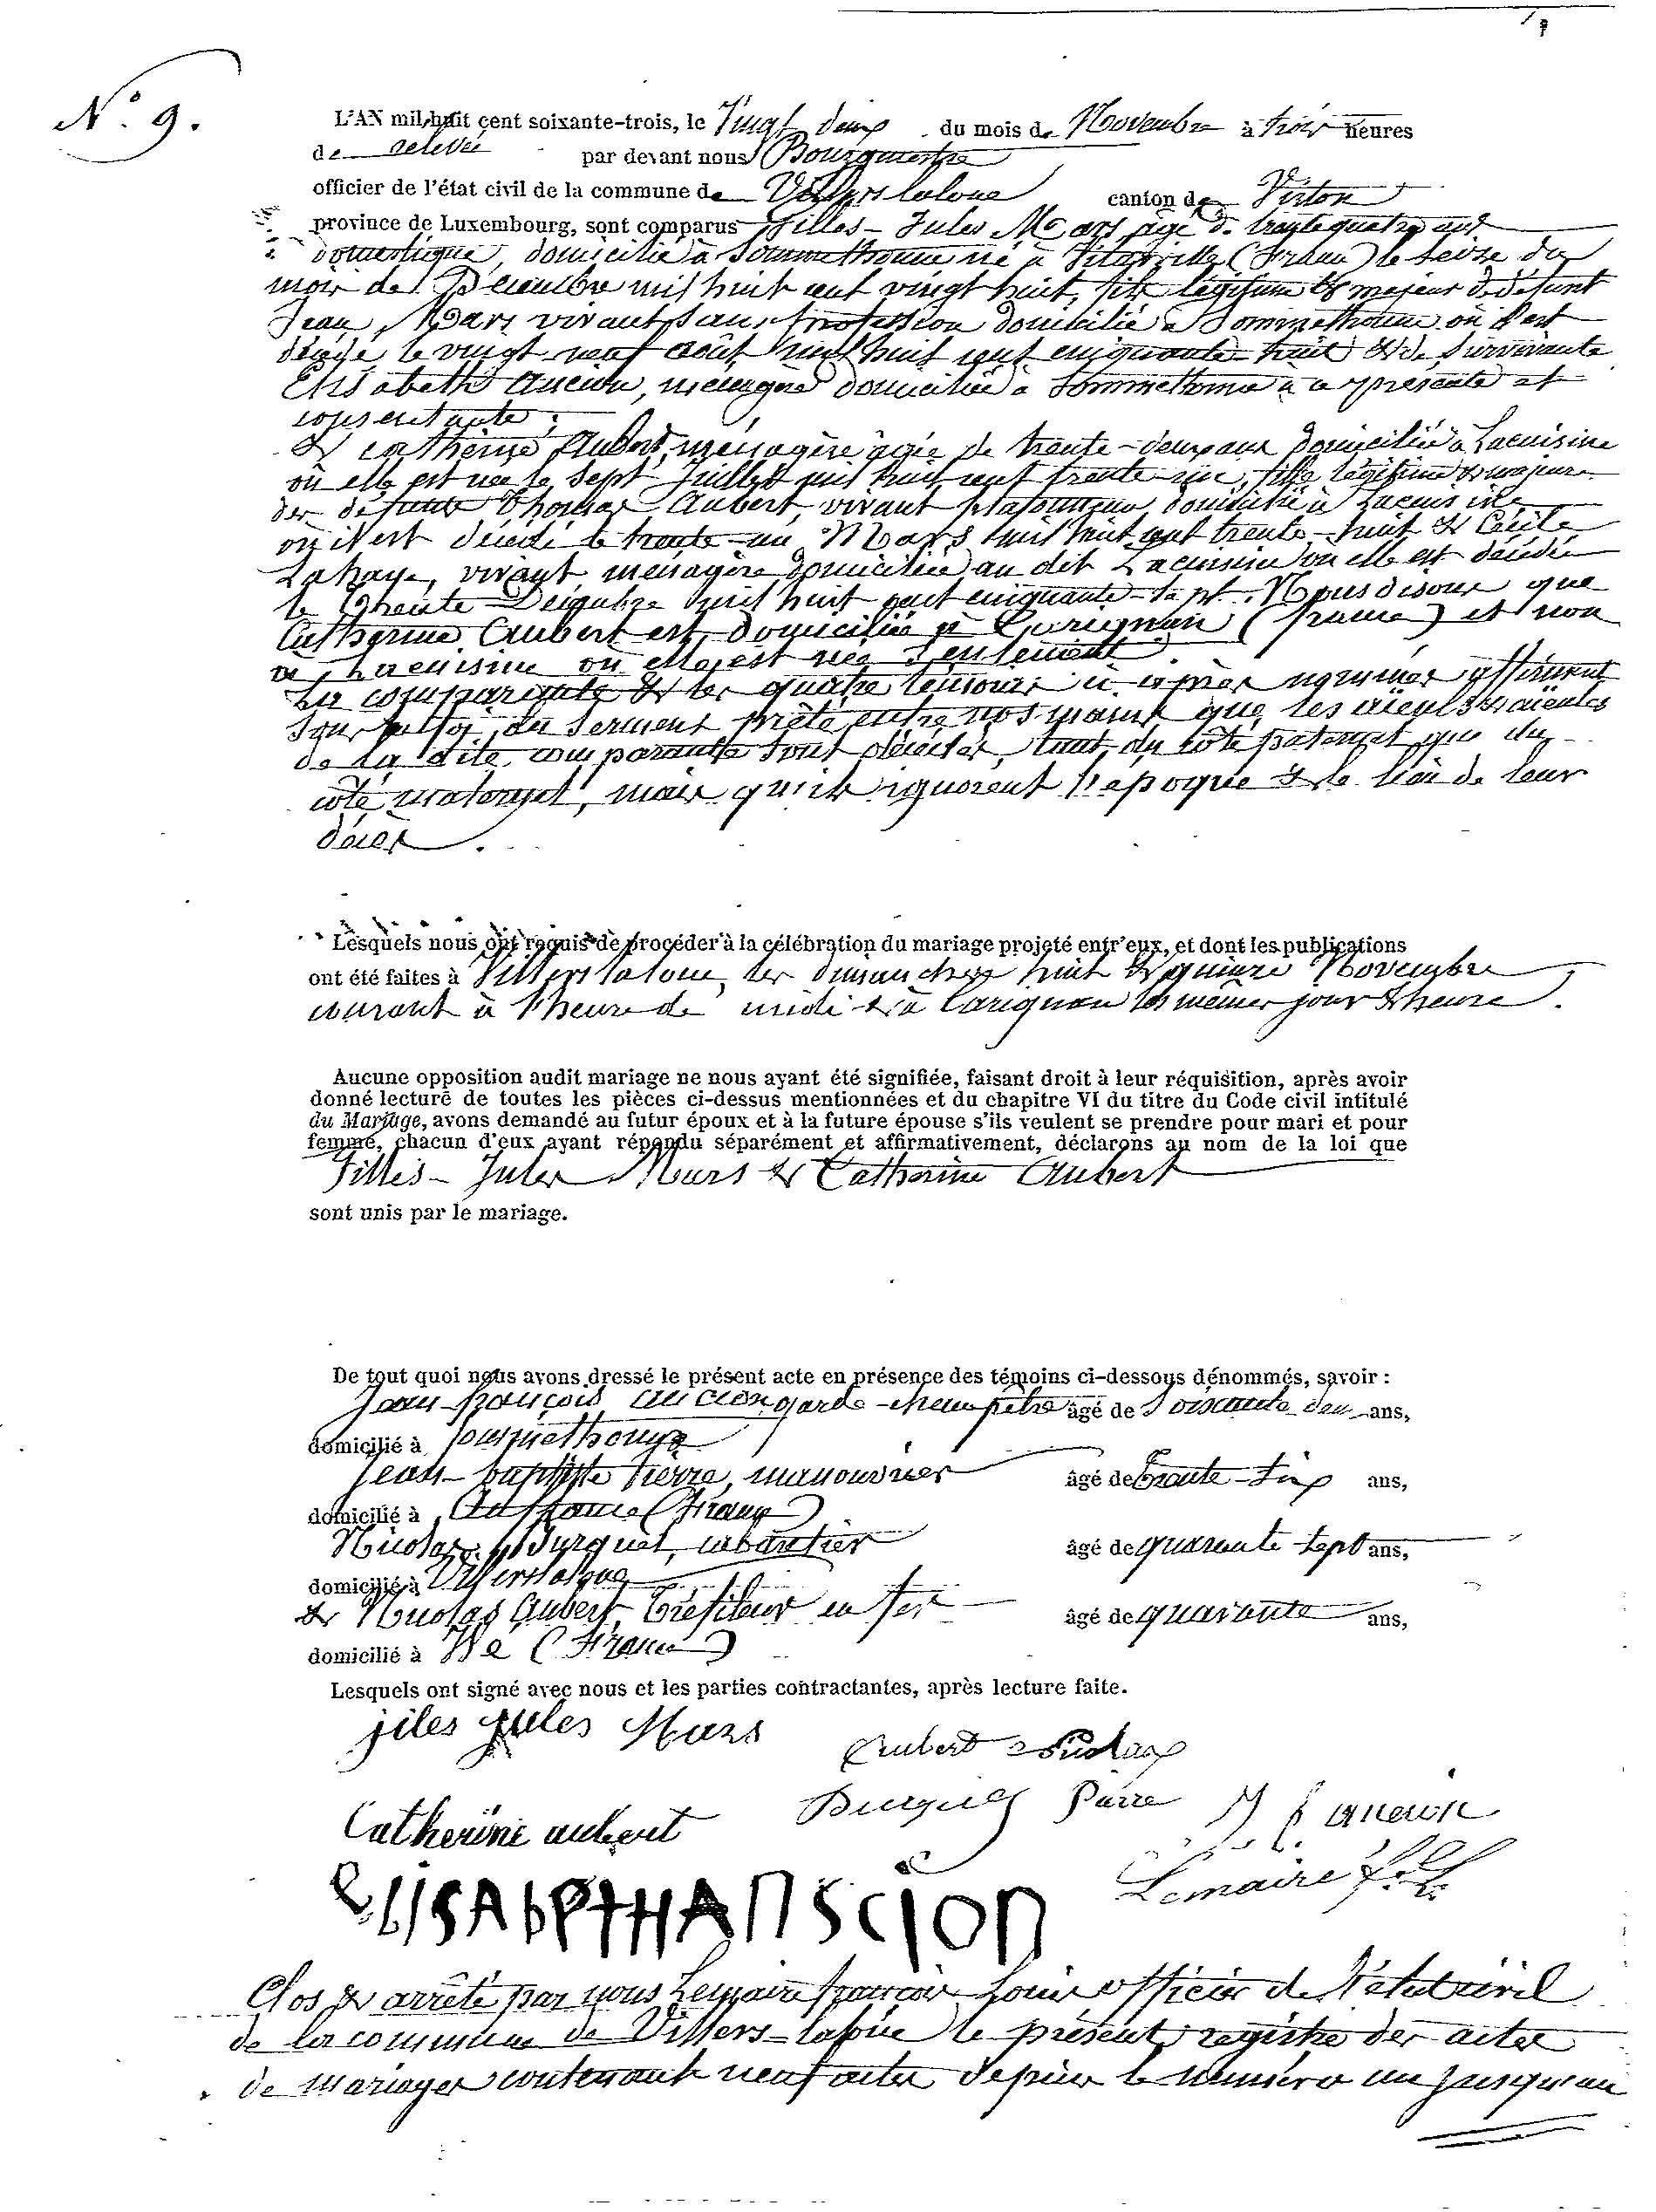 N° 9.
L'AN mil huit cent soixante-trois, le Vingt deux du mois de Novembre à trois heures
de relevée par devant nous Bourgmestre
officier de l'état civil de la commune de Villers laloue canton de Virton
province de Luxembourg, sont comparus Gilles - Jules Mars âgé de trente quatre ans
domestique, domicilié à Sommethonne né à (France) le seize du
mois de Décembre mil huit cent vingt huit, fils légitime & majeur de défunt
Jean Mars vivant sans profession domicilié à Sommethonne où il est
décédé le vingt neuf août mil huit cent cinquante huit & de survivante
Elisabeth Ancion, ménagère domiciliée à Sommethonne à ce présente et
consentante;
& Catherine Aubert, ménagère âgée de trente-deux ans domiciliée à Lacuisine
où elle est née le sept Juillet mil huit cent trente un, fille légitime & majeure
des défunts Thomas Aubert, vivant domicilié à Lacuisine
où il est décédé le trente-un Mars mil huit cent trente-huit & Cécile
Lahaye, vivant ménagère domiciliée au dit Lacuisine où elle est décédée
le trente Décembre mil huit cent cinquante-sept. Nous disons que
Catherine Aubert est domiciliée à Carignan (france) et non
à Lacuisine où elle est née seulement.
Les comparants & les quatre témoins ci-après nommés affirment
sous la foi du serment prêté entre nos mains que les aïeuls & aïeules
de la dite comparante sont décédés, tant du côté paternel que du
côté maternel, mais qu'ils ignorent l'époque & le lieu de leur
décès.
Lesquels nous ont requis de procéder à la célébration du mariage projeté entr'eux, et dont les publications
ont été faites à Villers laloue, les dimanches huit & quinze Novembre
courant à l'heure de midi & à Carignan les mêmes jour & heure.
Aucune opposition audit mariage ne nous ayant été signifiée, faisant droit à leur réquisition, après avoir
donné lecture de toutes les pièces ci-dessus mentionnées et du chapitre VI du titre du Code civil intitulé
du Mariage, avons demandé au futur époux et à la future épouse s'ils veulent se prendre pour mari et pour
femme, chacun d'eux ayant répondu séparément et affirmativement, déclarons au nom de la loi que
Gilles - Jules Mars & Catherine Aubert
sont unis par le mariage.
De tout quoi nous avons dressé le présent acte en présence des témoins ci-dessous dénommés, savoir :
Jean-françois Ancion garde-champêtre âgé de soixante deux ans,
domicilié à Sommethonne
Jean-baptiste Pierre, manouvrier âgé de trente-six ans,
domicilié à (France)
Nicolas Burquel, cabaretier âgé de quarante-sept ans,
domicilié à Villers laloue
& Nicolas Aubert, Tréfileur en fer âgé de quarante ans,
domicilié à (France)
Lesquels ont signé avec nous et les parties contractantes, après lecture faite.
jiles jules Mars
Aubert Nicolas
Catherine aubert Burquel Pierre J f ancion
ELISABETH ANSCION Lemaire f. L.
Clos & arrêté par nous Lemaire françois Louis officier de l'état civil
de la commune de Villers-laloue le présent registre des actes
de mariages contenant neuf actes depuis le numéro un jusqu'au